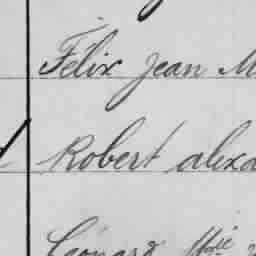 Félix Jean M
Robert alexa
Léonard